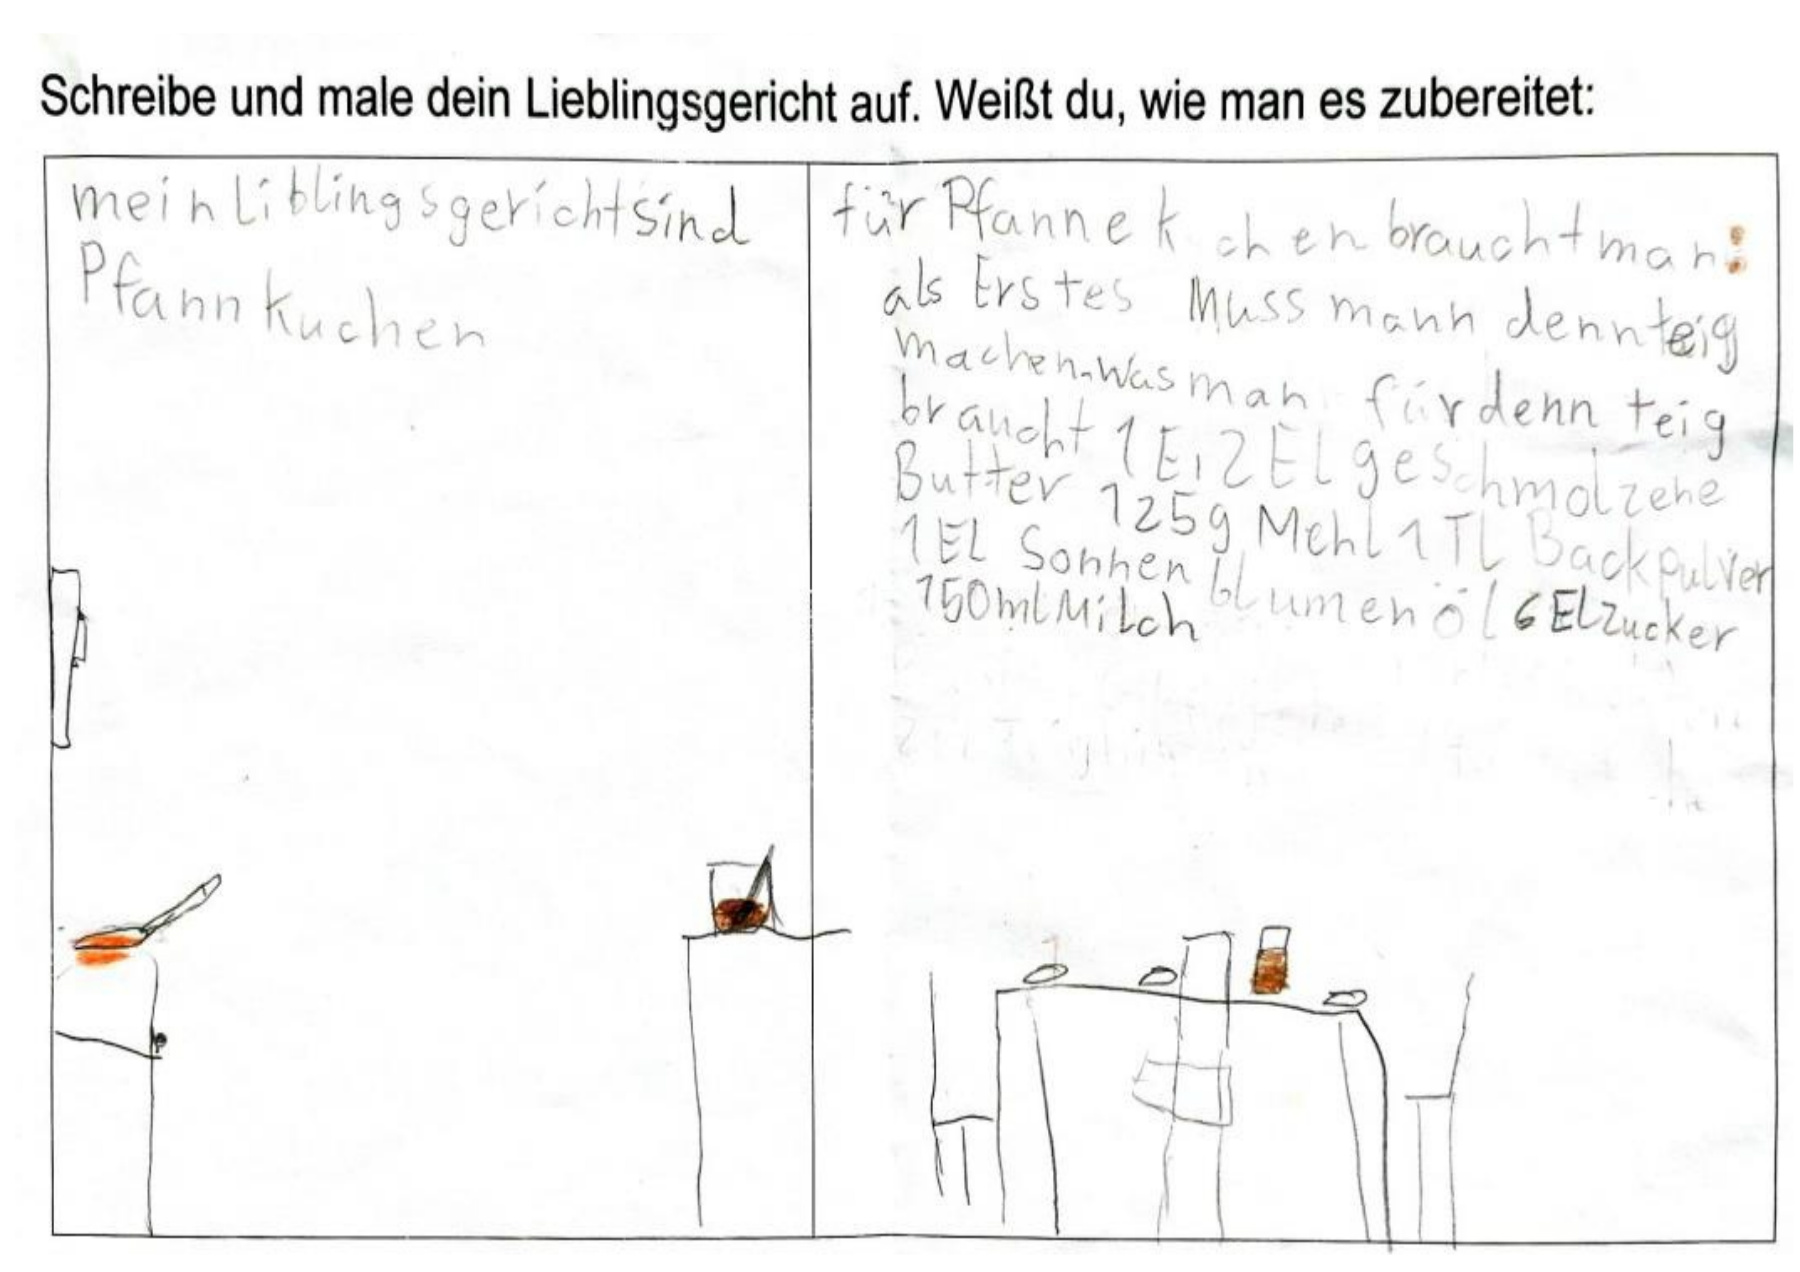 Schreibe und male dein Lieblingsgericht auf. Weißt du, wie man es zubereitet:
mein Liblingsgericht sind
Pfannkuchen
für Pfannek chen braucht man:
als Erstes Muss mann denn teig
machen. Was man für denn teig
braucht 1 Ei 2 El geschmolzene
Butter 125g Mehl 1 TL Backpulver
1 EL Sonnenblumenöl 6 EL Zucker
150 ml Milch